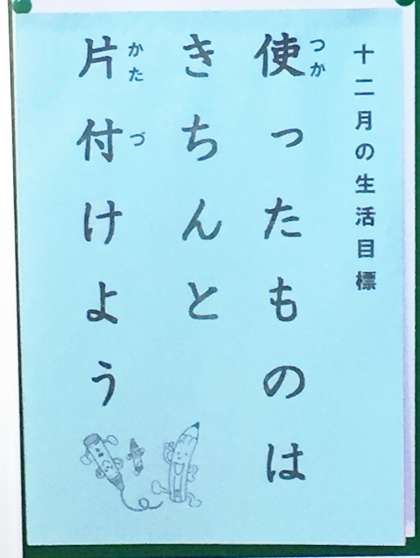 十二月の生活目標
使ったものは
つか
きちんと
片付けよう
かたづ